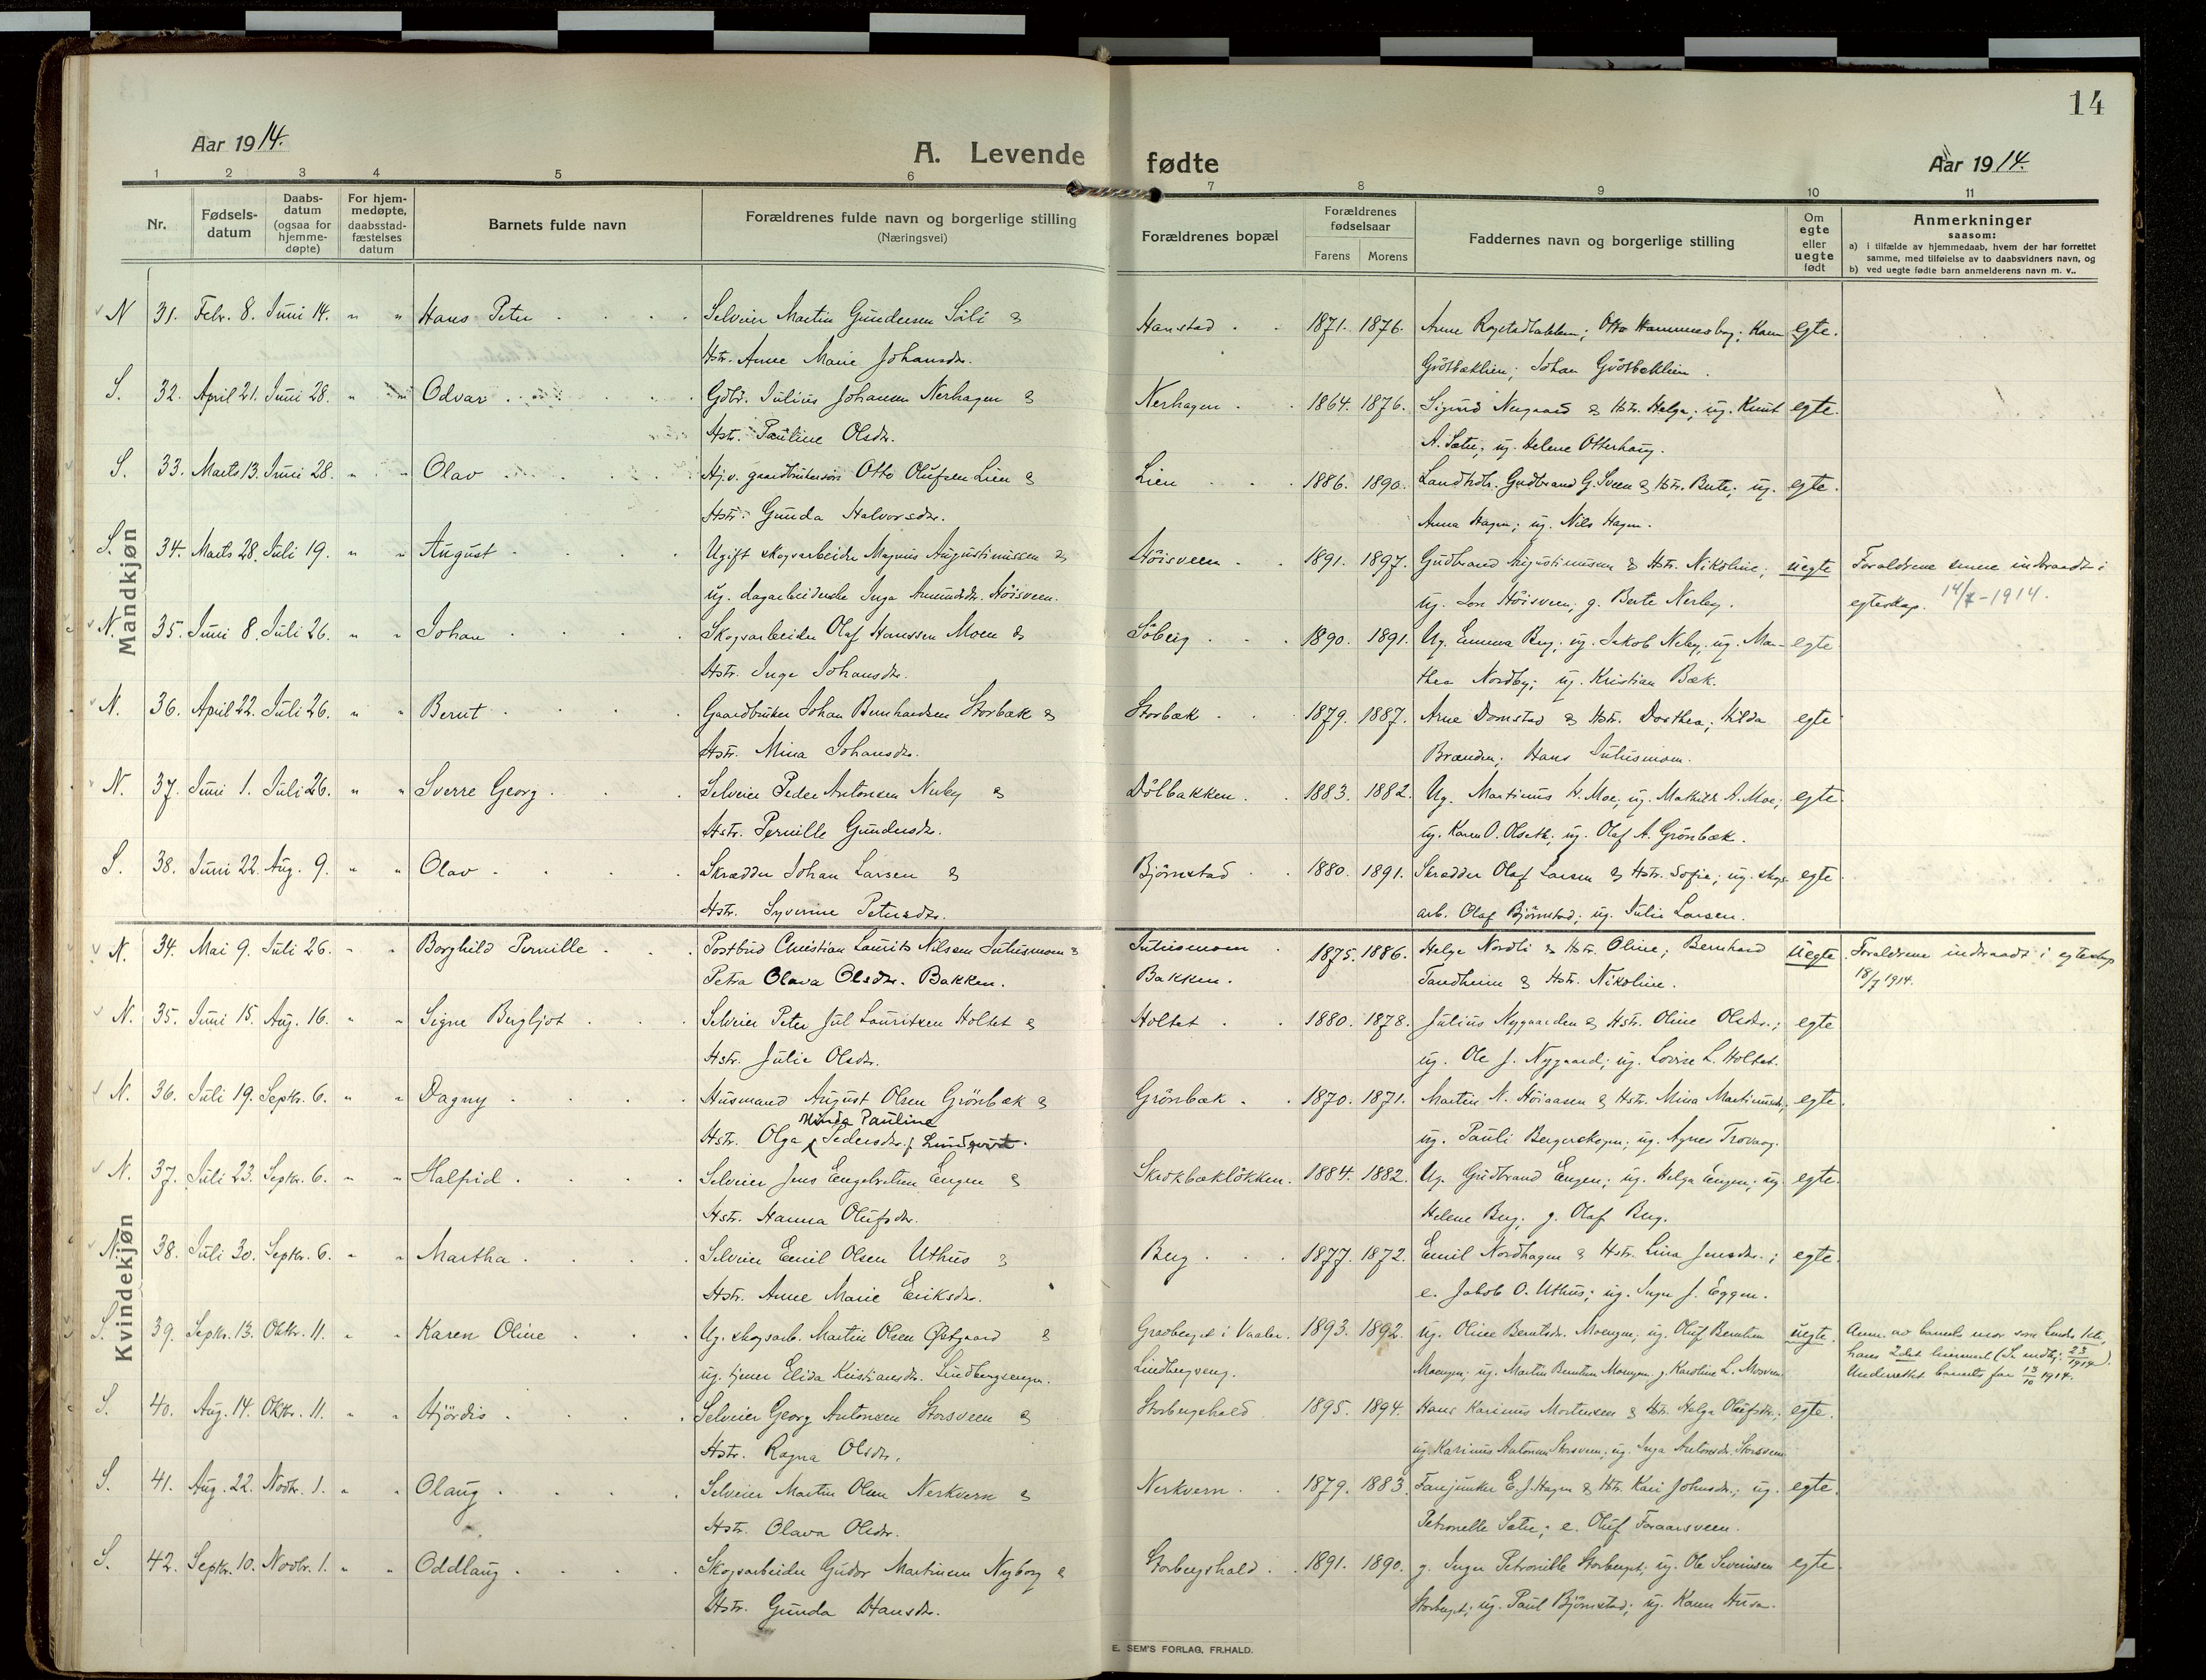 14
Aar 1914.
A. Levende fødte
Aar 1914.
1 2 3 4 5 6 7 8 9 10 11
Nr.
Fødsels-
datum
Daabs-
datum
(ogsaa for
hjemme-
døpte)
For hjem-
medøpte,
daabsstad-
fæstelses
datum
Barnets fulde navn
Forældrenes fulde navn og borgerlige stilling
(Næringsvei)
Forældrenes bopæl
Forældrenes
fødselsaar
Farens Morens
Faddernes navn og borgerlige stilling
Om
egte
eller
uegte
født
Anmerkninger
saasom:
a) i tilfælde av hjemmedaab, hvem der har forrettet
samme, med tilføielse av to daabsvidners navn, og
b) ved uegte fødte barn anmelderens navn m. v..
Mandkjøn
N 31. Febr. 8. Juni 14. " " Hans Peter Selveier Martin Gundersen Sili & Hanstad 1871. 1876. Arne Otto Hammersbog; Karen egte.
Hstr. Anne Marie Johansdr. Johan
S. 32. April 21. Juni 28. " " Odvar Gdbr. Julius Johansen Nerhagen & Nerhagen 1864. 1876. Sigurd Nergaard & Hstr. Helga; ug. Knut egte.
Hstr. Pauline Olsdr. A. Sætre; ug. Helene Otterhaug.
S. 33. Marts 13. Juni 28. " " Olav Hj.v. gaardbrukersøn Otto Olufsen Lien & Lien 1886. 1890. Landhdlr. Gudbrand G. Sveen & Hstr. Berte; ug. egte.
Hstr. Gunda Halvorsdr. Anna Hagen; ug. Nils Hagen.
S. 34. Marts 28. Juli 19. " " August Ugift skogsarbeider Magnus Augustinussen & Höisveen 1891. 1897. Gudbrand Augustinussen & Hstr. Nikoline; uegte Forældrene senere indtraadt i
ug. dagarbeiderske Inga Amundsdr. Höisveen. ug. Jon Höisveen; g. Berte Nerby. egteskap. 14/7-1914.
N. 35. Juni 8. Juli 26. " " Johan Skogsarbeider Olaf Hanssen Moen & Söberg 1890. 1891. Ug. Emma Berg; ug. Jakob Neby; ug. Mar- egte
Hstr. Inga Johansdr. thea Nordby; ug. Kristian Bæk.
N. 36. April 22. Juli 26. " " Bernt Gaardbruker Johan Bernhardsen Storbæk & Storbæk 1879. 1887. Arne Domstad & Hstr. Dorthea; Hilda egte
Hstr. Mina Johansdr. Brænden; Hans Julusmoen.
N. 37. Juni 1. Juli 26. " " Sverre Georg Selveier Peder Antonsen Nerby & Dölbakken 1883. 1882. Ug. Martinus H. Moe; ug. Mathilde A. Moe; egte
Hstr. Pernille Gundersdr. ug. Karen O. Olseth; ug. Olaf A. Grönbæk.
S. 38. Juni 22. Aug. 9. " " Olav Skrædder Johan Larsen & Björnstad 1880. 1891. Skrædder Olaf Larsen & Hstr. Sofie; ug. skogs- egte
Hstr. Syverine Petersdr. arb. Olaf Björnstad; ug. Julie Larsen.
Kvindekjøn
N. 34. Mai 9. Juli 26. " " Borghild Pernille Postbud Christian Laurits Nilsen Julusmoen & Julusmoen 1875. 1886. Helge Nordli & Hstr. Oline; Bernhard uegte Forældrene indtraadt i egteskap
Petra Olava Olsdr. Bakken. Bakken. Tandheim & Hstr. Nikoline. 18/7 1914.
N. 35. Juni 15. Aug. 16. " " Signe Bergljot Selveier Peter Jul Lauritzen Holtet & Holtet 1880. 1878. Julius Nygaarden & Hstr. Oline Olsdr.; egte
Hstr. Julie Olsdr. ug. Ole J. Nygaard; ug. Lovise L. Holtet.
N. 36. Juli 19. Septr. 6. " " Dagny Husmand August Olsen Grönbæk & Grönbæk 1870. 1871. Martin N. Höiaasen & Hstr. Mina Martinusdr.; egte
Minda Pauline
Hstr. Olga Pedersdr. f. Lundqvist. ug. Pauli Bergerskogen; ug. Agnes Trovaag.
N. 37. Juli 23. Septr. 6. " " Halfrid Selveier Jens Engebretsen Engen & Skrökbækløkken. 1884. 1882. Ug. Gudbrand Engen; ug. Helga Engen; ug. egte.
Hstr. Hanna Olufsdr. Helene Berg; g. Olaf Berg.
N. 38. Juli 30. Septr. 6. " " Martha Selveier Emil Olsen Uthus & Berg 1877. 1872. Emil Nordhagen & Hstr. Lina Jensdr.; egte.
Hstr. Anne Marie Eriksdr. e. Jakob O. Uthus; ug. Inga J. Eggen.
S. 39. Septr. 13. Oktr. 11. " " Karen Oline Ug. skogsarb. Martin Olsen Østgaard & Graaberget i Vaaler. 1893. 1892. ug. Oline Berntsdr. Moengen; ug. Oluf Berntsen uegte. Anm. av barnets mor som hendes 1ste,
ug. tjener Elida Kristiansdr. Lindbergsengen. Lindbergseng. Moengen; ug. Martin Berntsen Moengen. g. Karoline L. Mosveen hans 2det leiermaal
Underrettet barnets far 13/10 1914.
S. 40. Aug. 14. Oktr. 11. " " Hjördis Selveier Georg Antonsen Storsveen & Storbergshald 1895. 1894. Hans Karinus Mortensen & Hstr. Helga Olufsdr.; egte.
Hstr. Ragna Olsdr. ug. Karinus Antonsen Storsveen; ug. Inga Antonsdr. Storsveen
S. 41. Aug. 22. Novbr. 1. " " Olaug Selveier Martin Olsen Nerkvern & Nerkvern 1879. 1883. Fanejunker E. J. Hagen & Hstr. Kari Johnsdr.; ug. egte.
Hstr. Olava Olsdr. Petronelle Sætre; e. Oluf Foraarsveen.
S. 42. Septr. 10. Novbr. 1. " " Oddlaug Skogsarbeider Gudor Martinsen Nyborg & Storbergshald 1891. 1890. g. Inger Petronille Storberget; ug. Ole Severinsen egte
Hstr. Gunda Hansdr. Storberget; ug. Paul Björnstad; ug. Karen Husa.
E. SEM'S FORLAG, FR.HALD.